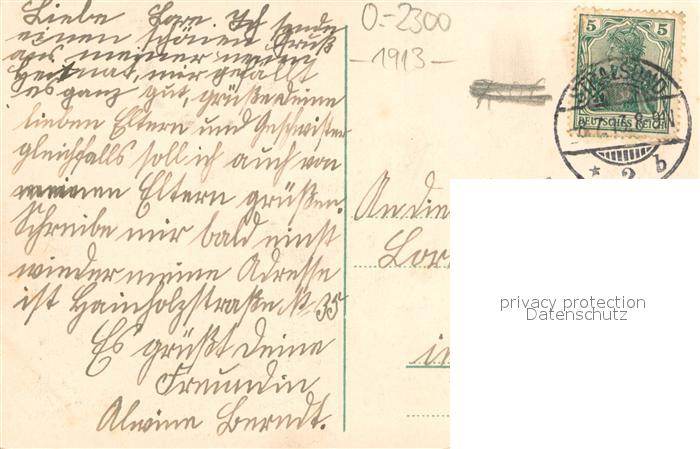 Liebe Lore. Ich sende
einen schönen Gruß
aus meiner neuen
Heimat, mir gefällt
es ganz gut, grüße deine
lieben Eltern und Geschwister
gleichfalls soll ich auch von
meinen Eltern grüßen.
Schreibe mir bald einst
wieder meine Adresse
ist Hainholzstraße № 35
Es grüßt Deine
Freundin
Alwine Berndt.
O.-2300
-1913-
5 5
STRALSUND
DEUTSCHES REICH
* 2 b
An die
Lor
in
privacy protection
Datenschutz